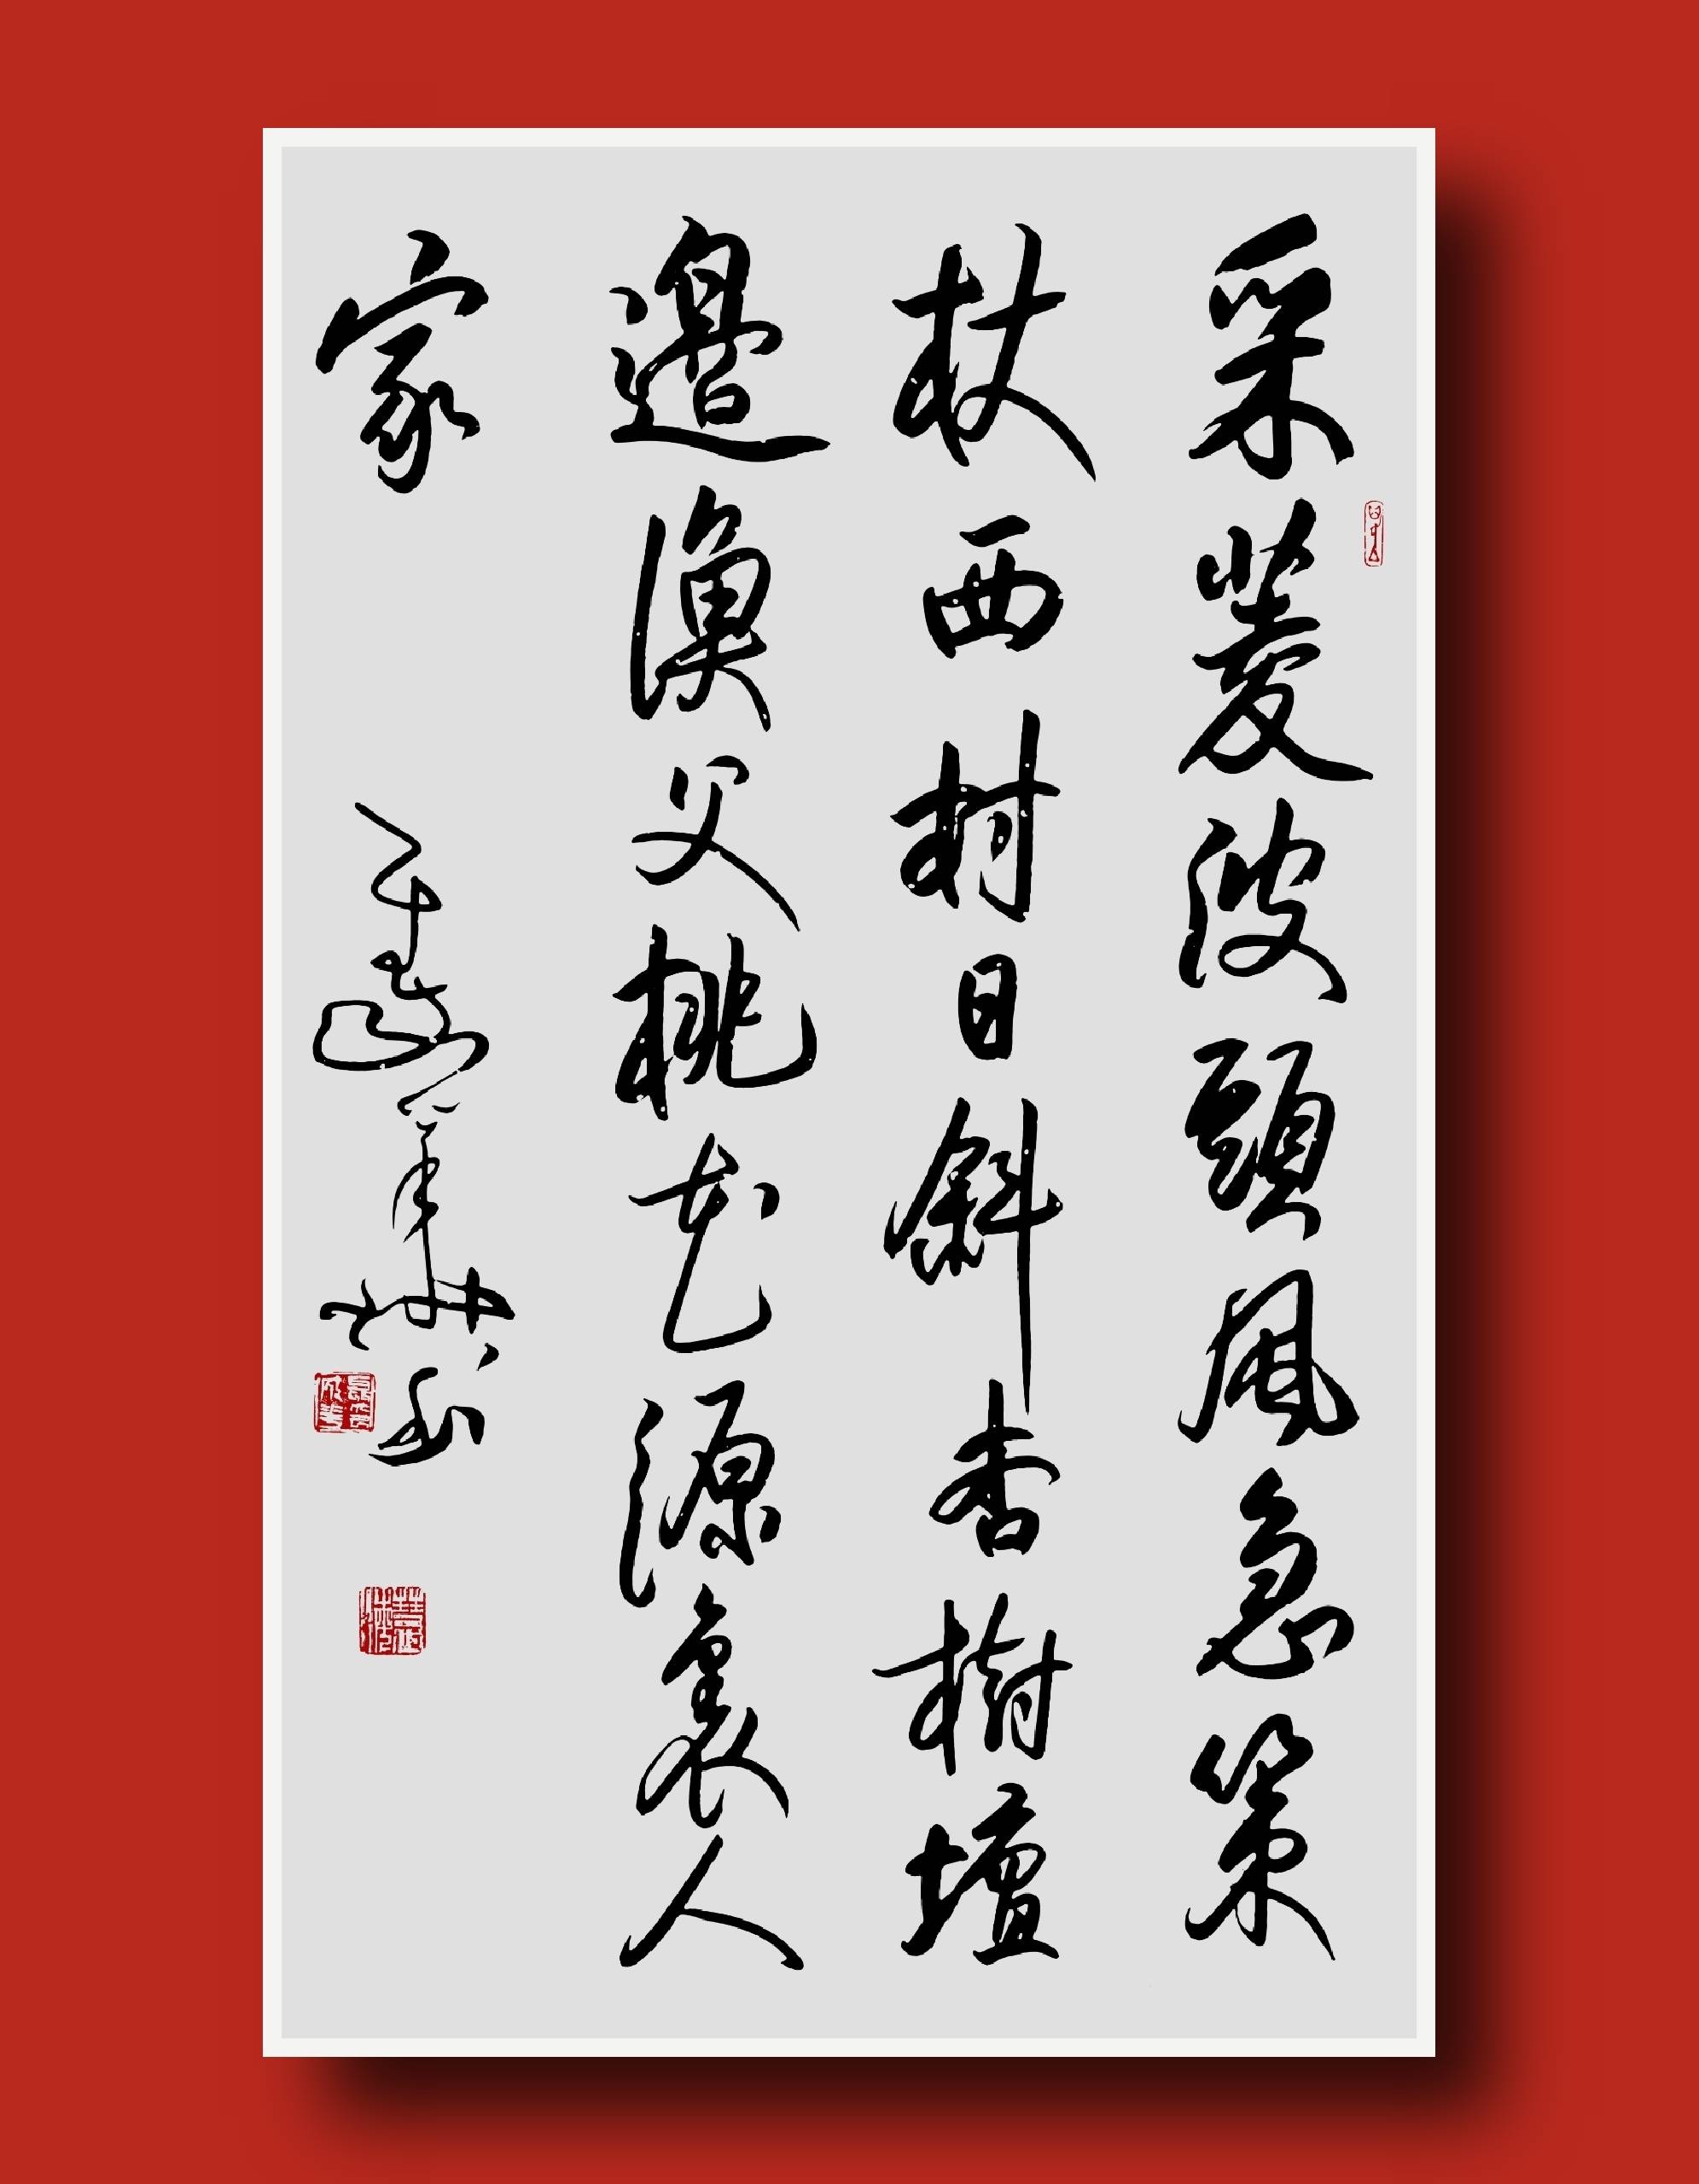 采菱波頭風急策
杖西村日斜杏樹壇
邊漁父桃花源裏人
家